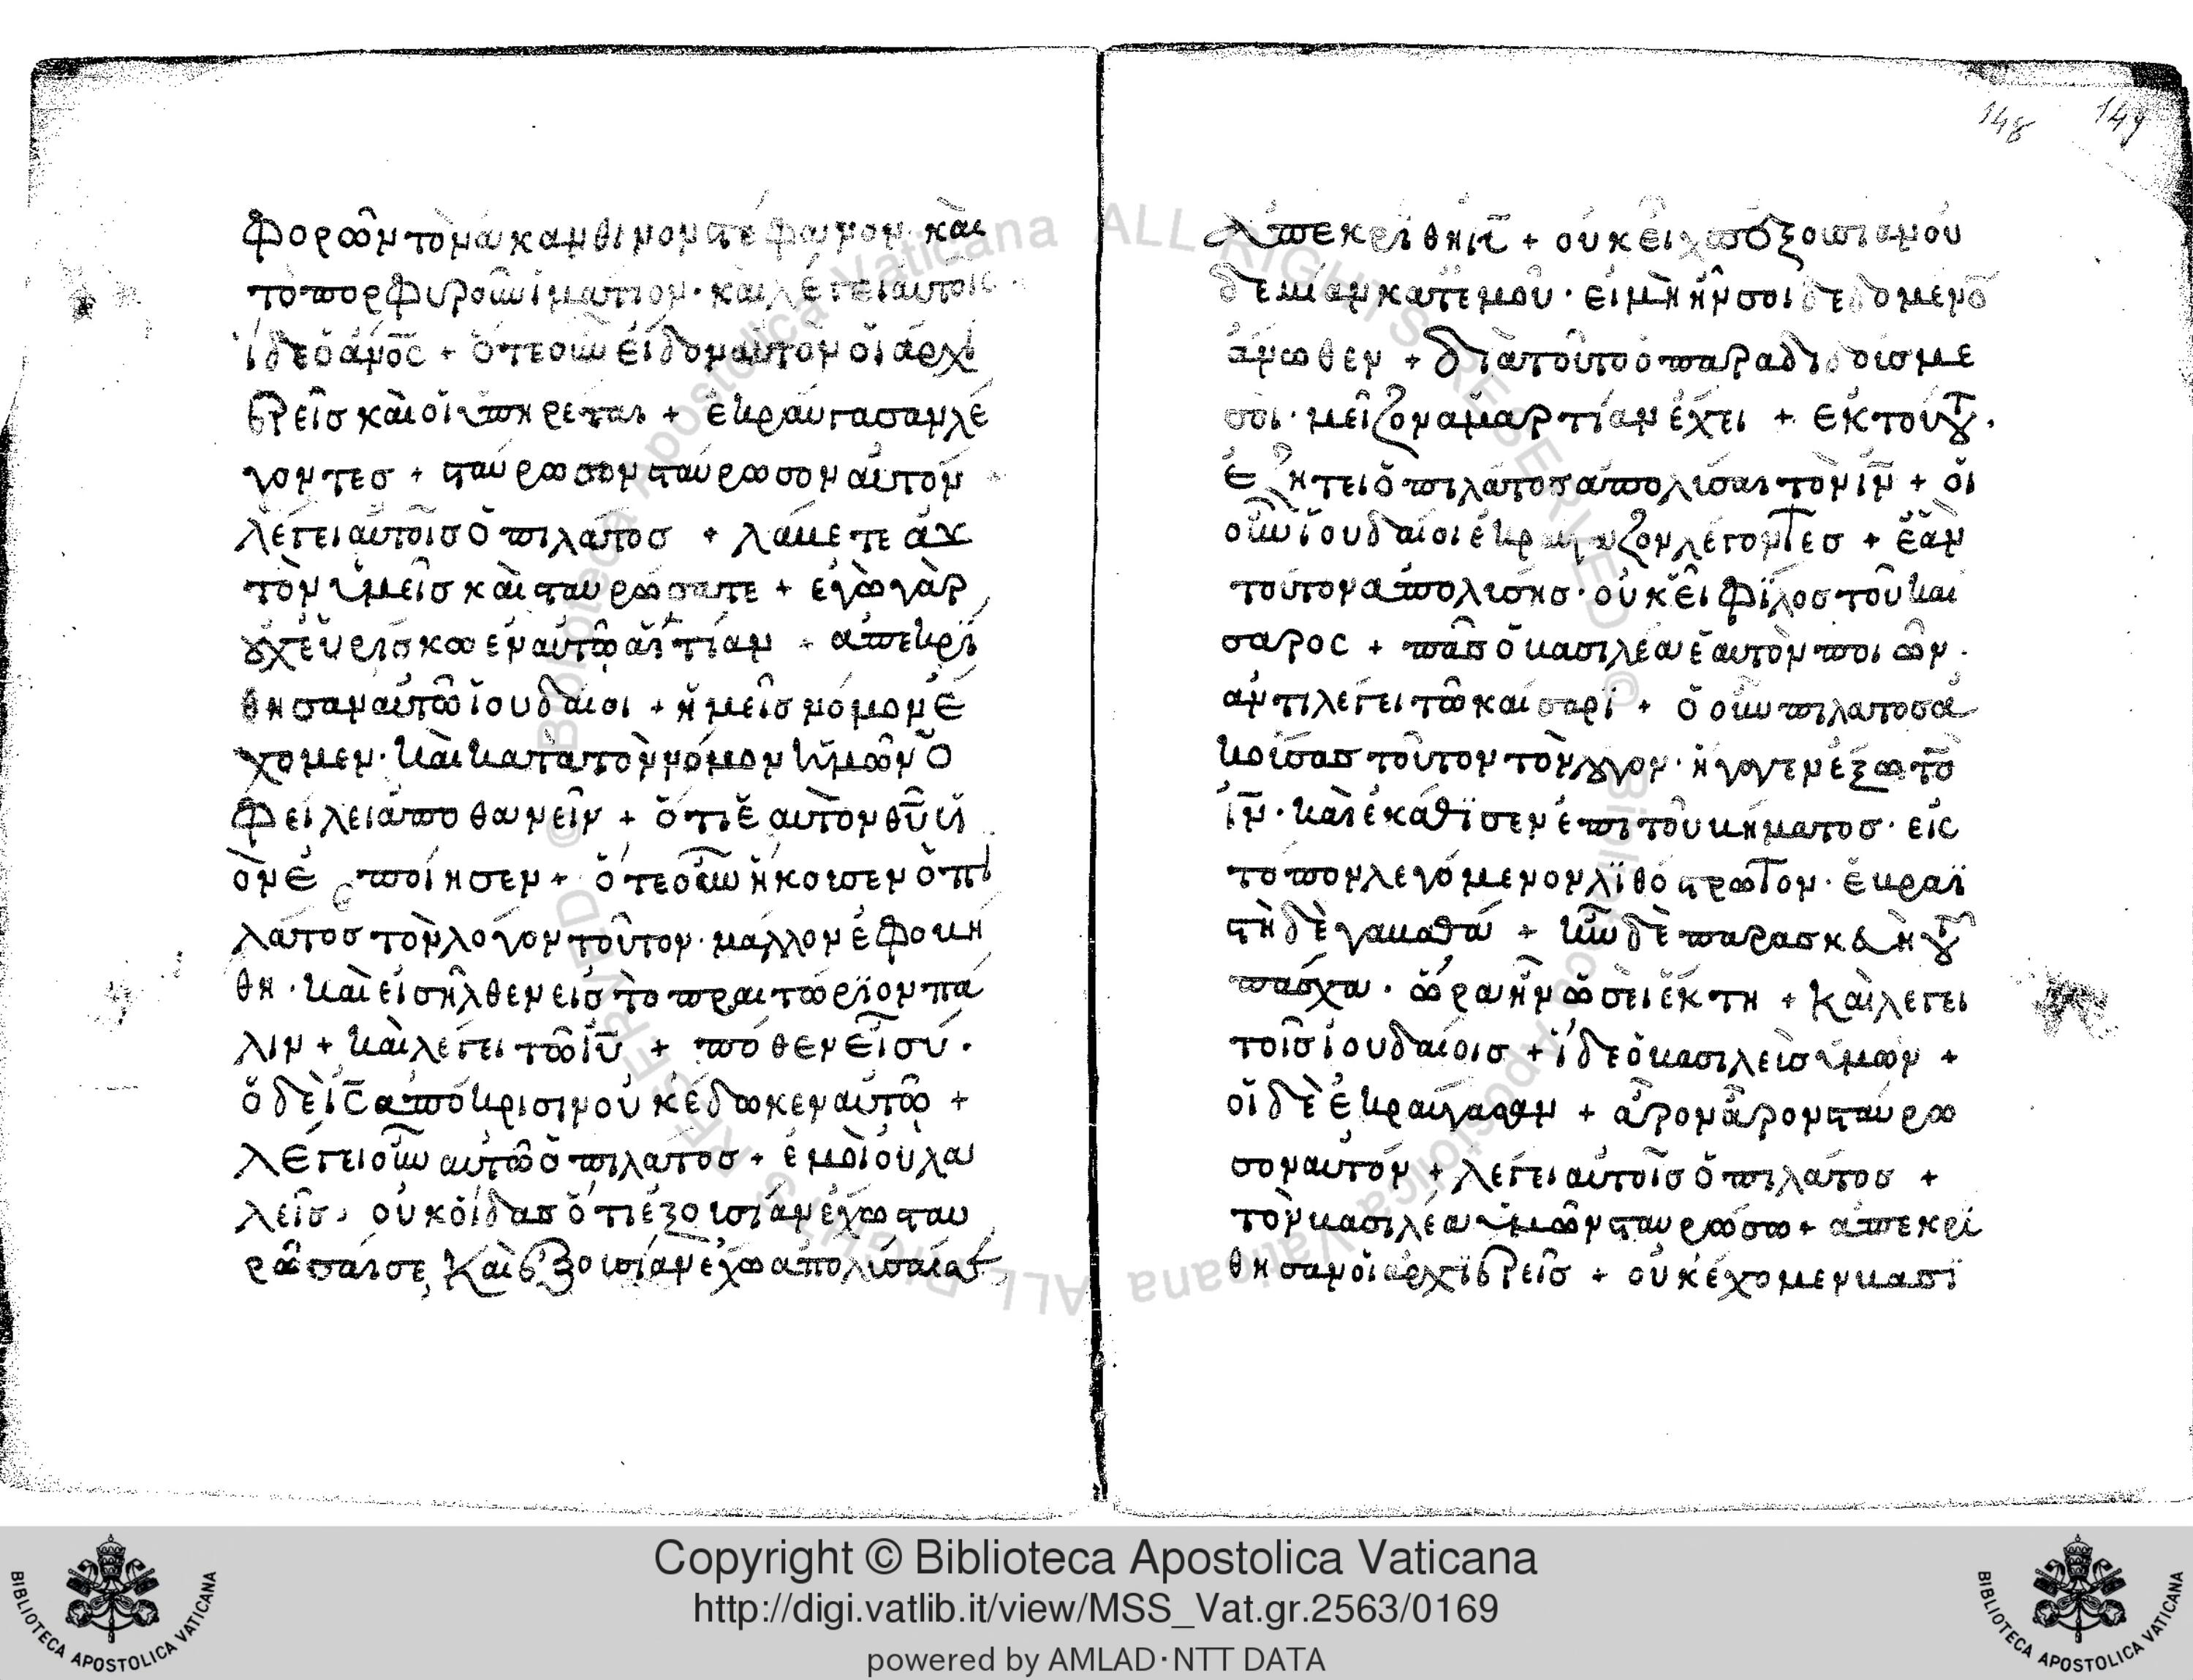 φορῶν τὸν ἀκάνθινον στέφανον· καὶ
τὸ πορφυροῦν ἱμάτιον· καὶ λέγει αὐτοῖς
ἴδε ὁ ἄν̅ο̅ς + ὅτε οὖν εἶδον αὐτὸν οἱ ἀρχι
ερεῖσ καὶ οἱ ὑπηρέται + ἐκραύγασαν λέ
γοντεσ + σταύρωσον σταύρωσον αὐτόν
λέγει αὐτοῖσ ὁ πιλάτοσ + λάβετε αὐ
τὸν ὑμεῖσ καὶ σταυρώσατε + ἐγὼ γὰρ
οὐχ εὑρίσκω ἐν αὐτῶ αἰτίαν + ἀπεκρί
θησαν αὐτῶ ἰουδαῖοι + ἡμεῖσ νόμον ἔ
χομεν· καὶ κατὰ τὸν νόμον ἡμῶν ὀ
φείλει ἀποθανεῖν + ὅτι ἑαυτὸν θ̅υ̅ υἱ
ὸν ἐποίησεν + ὅτε οὖν ἤκουσεν ὁ πι
λάτοσ τὸν λόγον τοῦτον· μᾶλλον ἐφοβή
θη· καὶ εἰσῆλθεν εἰσ τὸ πραιτώριον πά
λιν + καὶ λέγει τῶ ι̅υ̅ + πόθεν εἶ σύ·
ὁ δὲ ι̅ς̅ ἀπόκρισιν οὐκ ἔδωκεν αὐτῶ +
λέγει οὖν αὐτῶ ὁ πιλάτοσ + ἐμοὶ οὐ λα
λεῖσ, οὐκ οἶδασ ὅτι ἐξουσίαν ἔχω σταυ
ρῶσαί σε, καὶ ἐξουσίαν ἔχω ἀπολύσαί σε
148 149
Ἀπεκρίθη ι̅ς̅ + οὐκ εἶχεσ ἐξουσίαν οὐ
δεμίαν κατ' ἐμοῦ· εἰ μὴ ἦν σοι δεδομένο
ἄνωθεν + διὰ τοῦτο ὁ παραδιδούσ με
σοι· μείζονα ἁμαρτίαν ἔχει + ἐκ τούτου·
ἐζήτει ὁ πιλάτοσ ἀπολύσαι τὸν ι̅ν̅ + οἱ
οὖν ἰουδαῖοι ἐκραύαζον λέγοντεσ + ἐὰν
τοῦτον ἀπολύσησ· οὐκ εἶ φίλοσ τοῦ καί
σαρος + πᾶσ ὁ βασιλέα ἑαυτὸν ποιῶν·
ἀντιλέγει τῶ καίσαρι + ὁ οὖν πιλάτοσ ἀ
κούσασ τοῦτον τὸν λόγον· ἤγαγεν ἔξω τὸ
ι̅ν̅· καὶ ἐκάθισεν ἐπὶ τοῦ βήματοσ· εἰς
τόπον λεγόμενον λιθόστρωτον· ἑβραϊ
στὶ δὲ γαβαθά + ἦν δὲ παρασκευὴ τοῦ
πάσχα· ὥρα ἦν ὡσεὶ ἕκτη + καὶ λέγει
τοῖσ ἰουδαίοισ + ἴδε ὁ βασιλεὺσ ὑμῶν +
οἱ δὲ ἐκραύγασαν + ἆρον ἆρον σταύρω
σον αὐτόν + λέγει αὐτοῖσ ὁ πιλάτοσ +
τὸν βασιλέα ὑμῶν σταυρώσω + ἀπεκρί
θησαν οἱ ἀρχιερεῖσ + οὐκ ἔχομεν βασι
Copyright © Biblioteca Apostolica Vaticana
http://digi.vatlib.it/view/MSS_Vat.gr.2563/0169
powered by AMLAD·NTT DATA
BIBLIOTECA APOSTOLICA VATICANA
BIBLIOTECA APOSTOLICA VATICANA